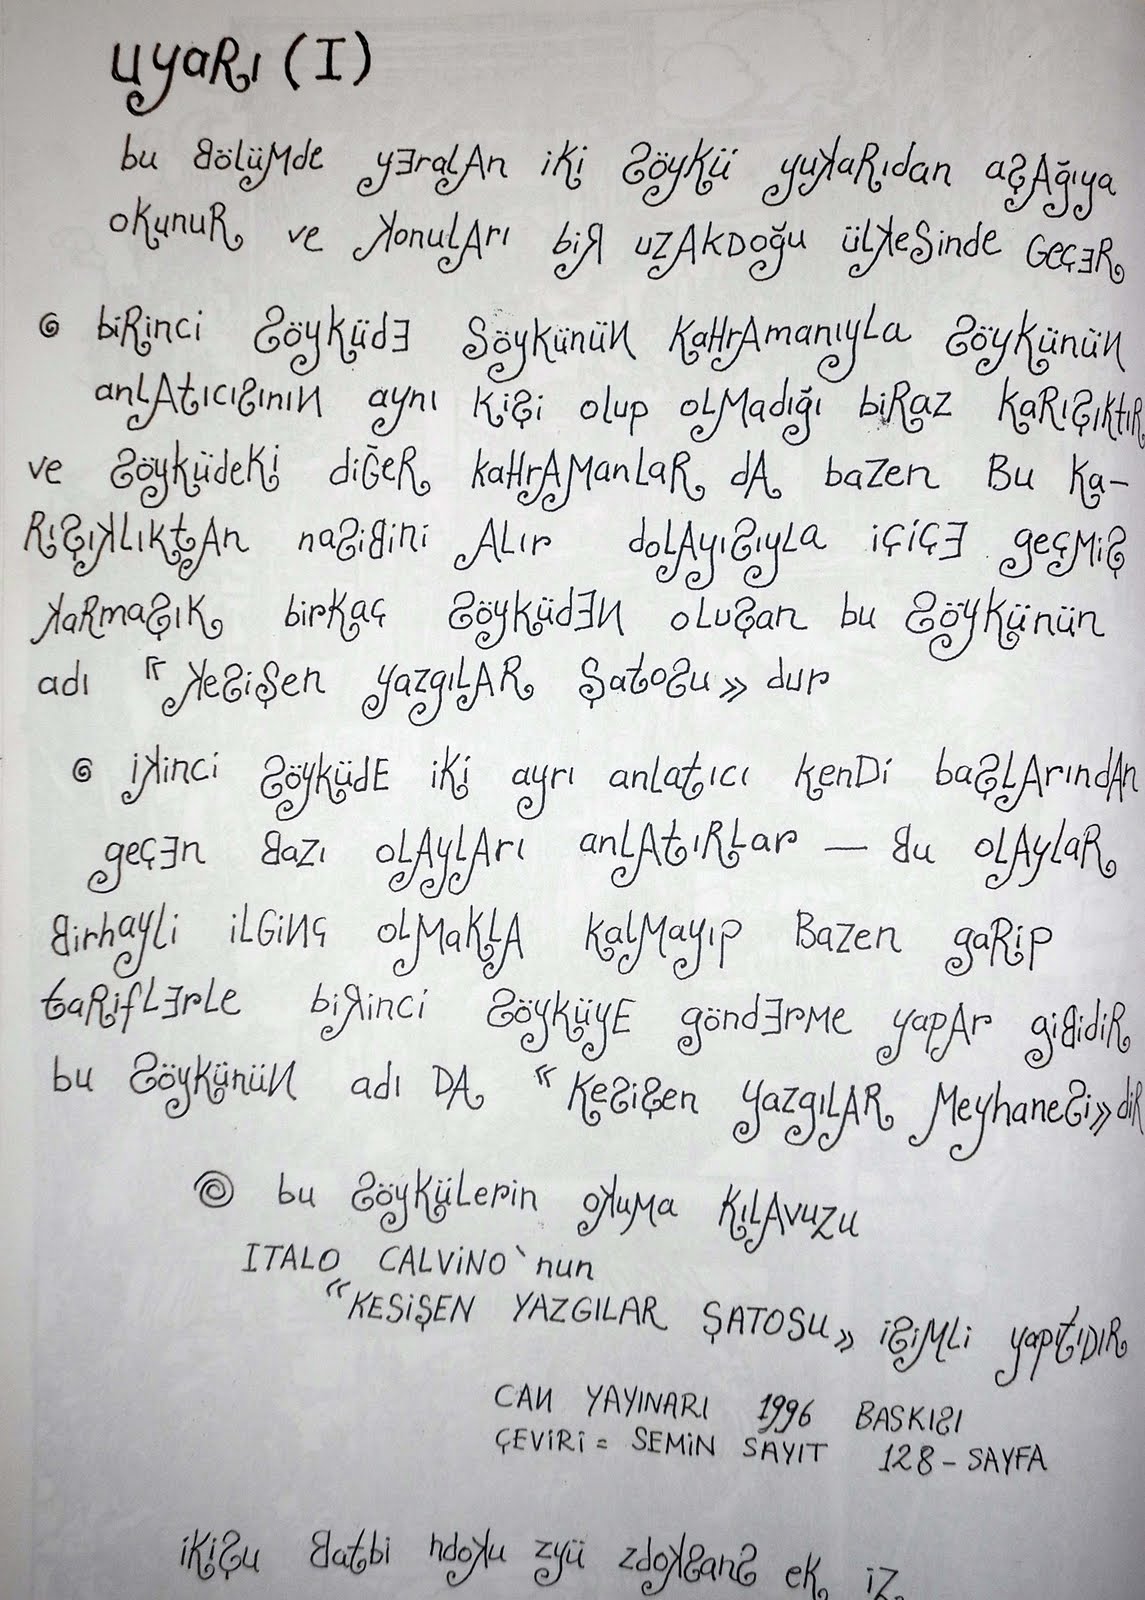 uyaRı (I)
bu BölüMde yEralAn iKi Söykü yukaRıdan aşAğıya
oKunuR ve KonuLArı biR uZAKDoğu ülKeSinde GeçER
biRinci SöyküdE SöykünüN KaHrAmanıyLa SöykünüN
anLAtıcıSınıN aynı Kişi olup oLMadığı biRaz KaRışıktıR
ve SöyküdeKi diĞeR KaHrAManLaR dA bazen Bu Ka-
RışıKLıKtAn naSiBini ALır doLAyıSıyLa içiçE geçMiş
KaRmaşıK birKaç SöyküdEN oLuşan bu Söykünün
adı « KeSişen yazgıLAR ŞatoSu» dur
iKinci SöyküdE iKi ayrı anlatıcı KenDi başLArındAn
geçEn BaZı oLAyLArı anLAtıRLar — Bu oLAyLaR
BirhayLi iLGiNç oLMaKLA KaLMayıp Bazen gaRip
taRifLErLe biRinci SöyküyE göndErme yapAr giBidiR
bu SöykünüN adı DA « KeSişen YazgıLAR MeyhaneSi» diR
bu SöyküLerin oKuMa KıLAvuZu
ITALO CALViNO`nun
«KESiŞEN YAZGILAR ŞATOSU» iSiMLi yapıtıDIR
CAN YAYINARI 1996 BASKISI
ÇEViRi = SEMiN SAYIT 128-SAYFA
iKiŞu Batbi ndoKu zyü zdoKSanS eK iZ